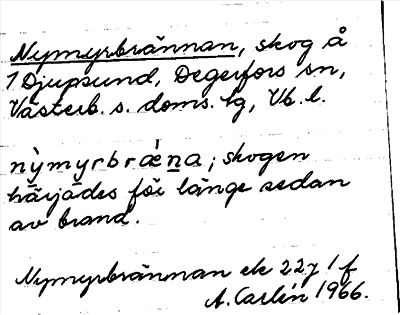 Nymyrbrännan, skog å
1 Djupsund, Degerfors sn,
Västerb. s. doms. lg, Vb. l.
nỳmyrbrǽna; skogen
härjades för länge sedan
av brand.
Nymyrbrännan ek 22 j 1 f
A. Carlin 1966.